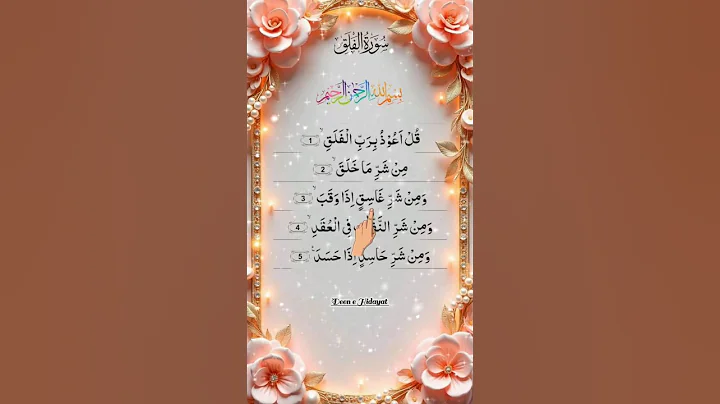 سُورَةُ الْفَلَقِ
بِسْمِ اللهِ الرَّحْمٰنِ الرَّحِيْمِ
قُلْ اَعُوْذُ بِرَبِّ الْفَلَقِ ۙ 1
مِنْ شَرِّ مَا خَلَقَ ۙ 2
وَمِنْ شَرِّ غَاسِقٍ اِذَا وَقَبَ ۙ 3
وَمِنْ شَرِّ فِی الْعُقَدِ ۙ 4
وَمِنْ شَرِّ حَاسِدٍ اِذَا حَسَدَ 5
Deen e Hidayat